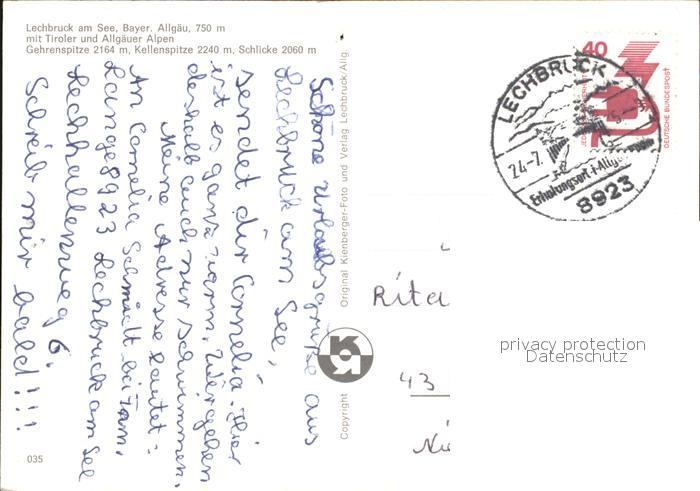 Lechbruck am See, Bayer. Allgäu, 750 m
mit Tiroler und Allgäuer Alpen
Gehrenspitze 2164 m, Kellenspitze 2240 m, Schlicke 2060 m
Schöne Urlaubsgrüße aus
Lechbruck am See,
sendet dir Cornelia. Hier
ist es ganz warm. Wir gehen
deshalb auch nur schwimmen.
Meine Adresse lautet:
An Cornelia Schmidt bei Fam.
Lange 8923 Lechbruck am See
Lechhallenweg 6.
Schreib mir bald!!!
035
Copyright Original Kienberger-Foto und Verlag Lechbruck/Allg.
40
DEUTSCHE BUNDESPOST
LECHBRUCK
24.-7.
Erholungsort i. Allgäu
8923
Rita
43
privacy protection
Datenschutz